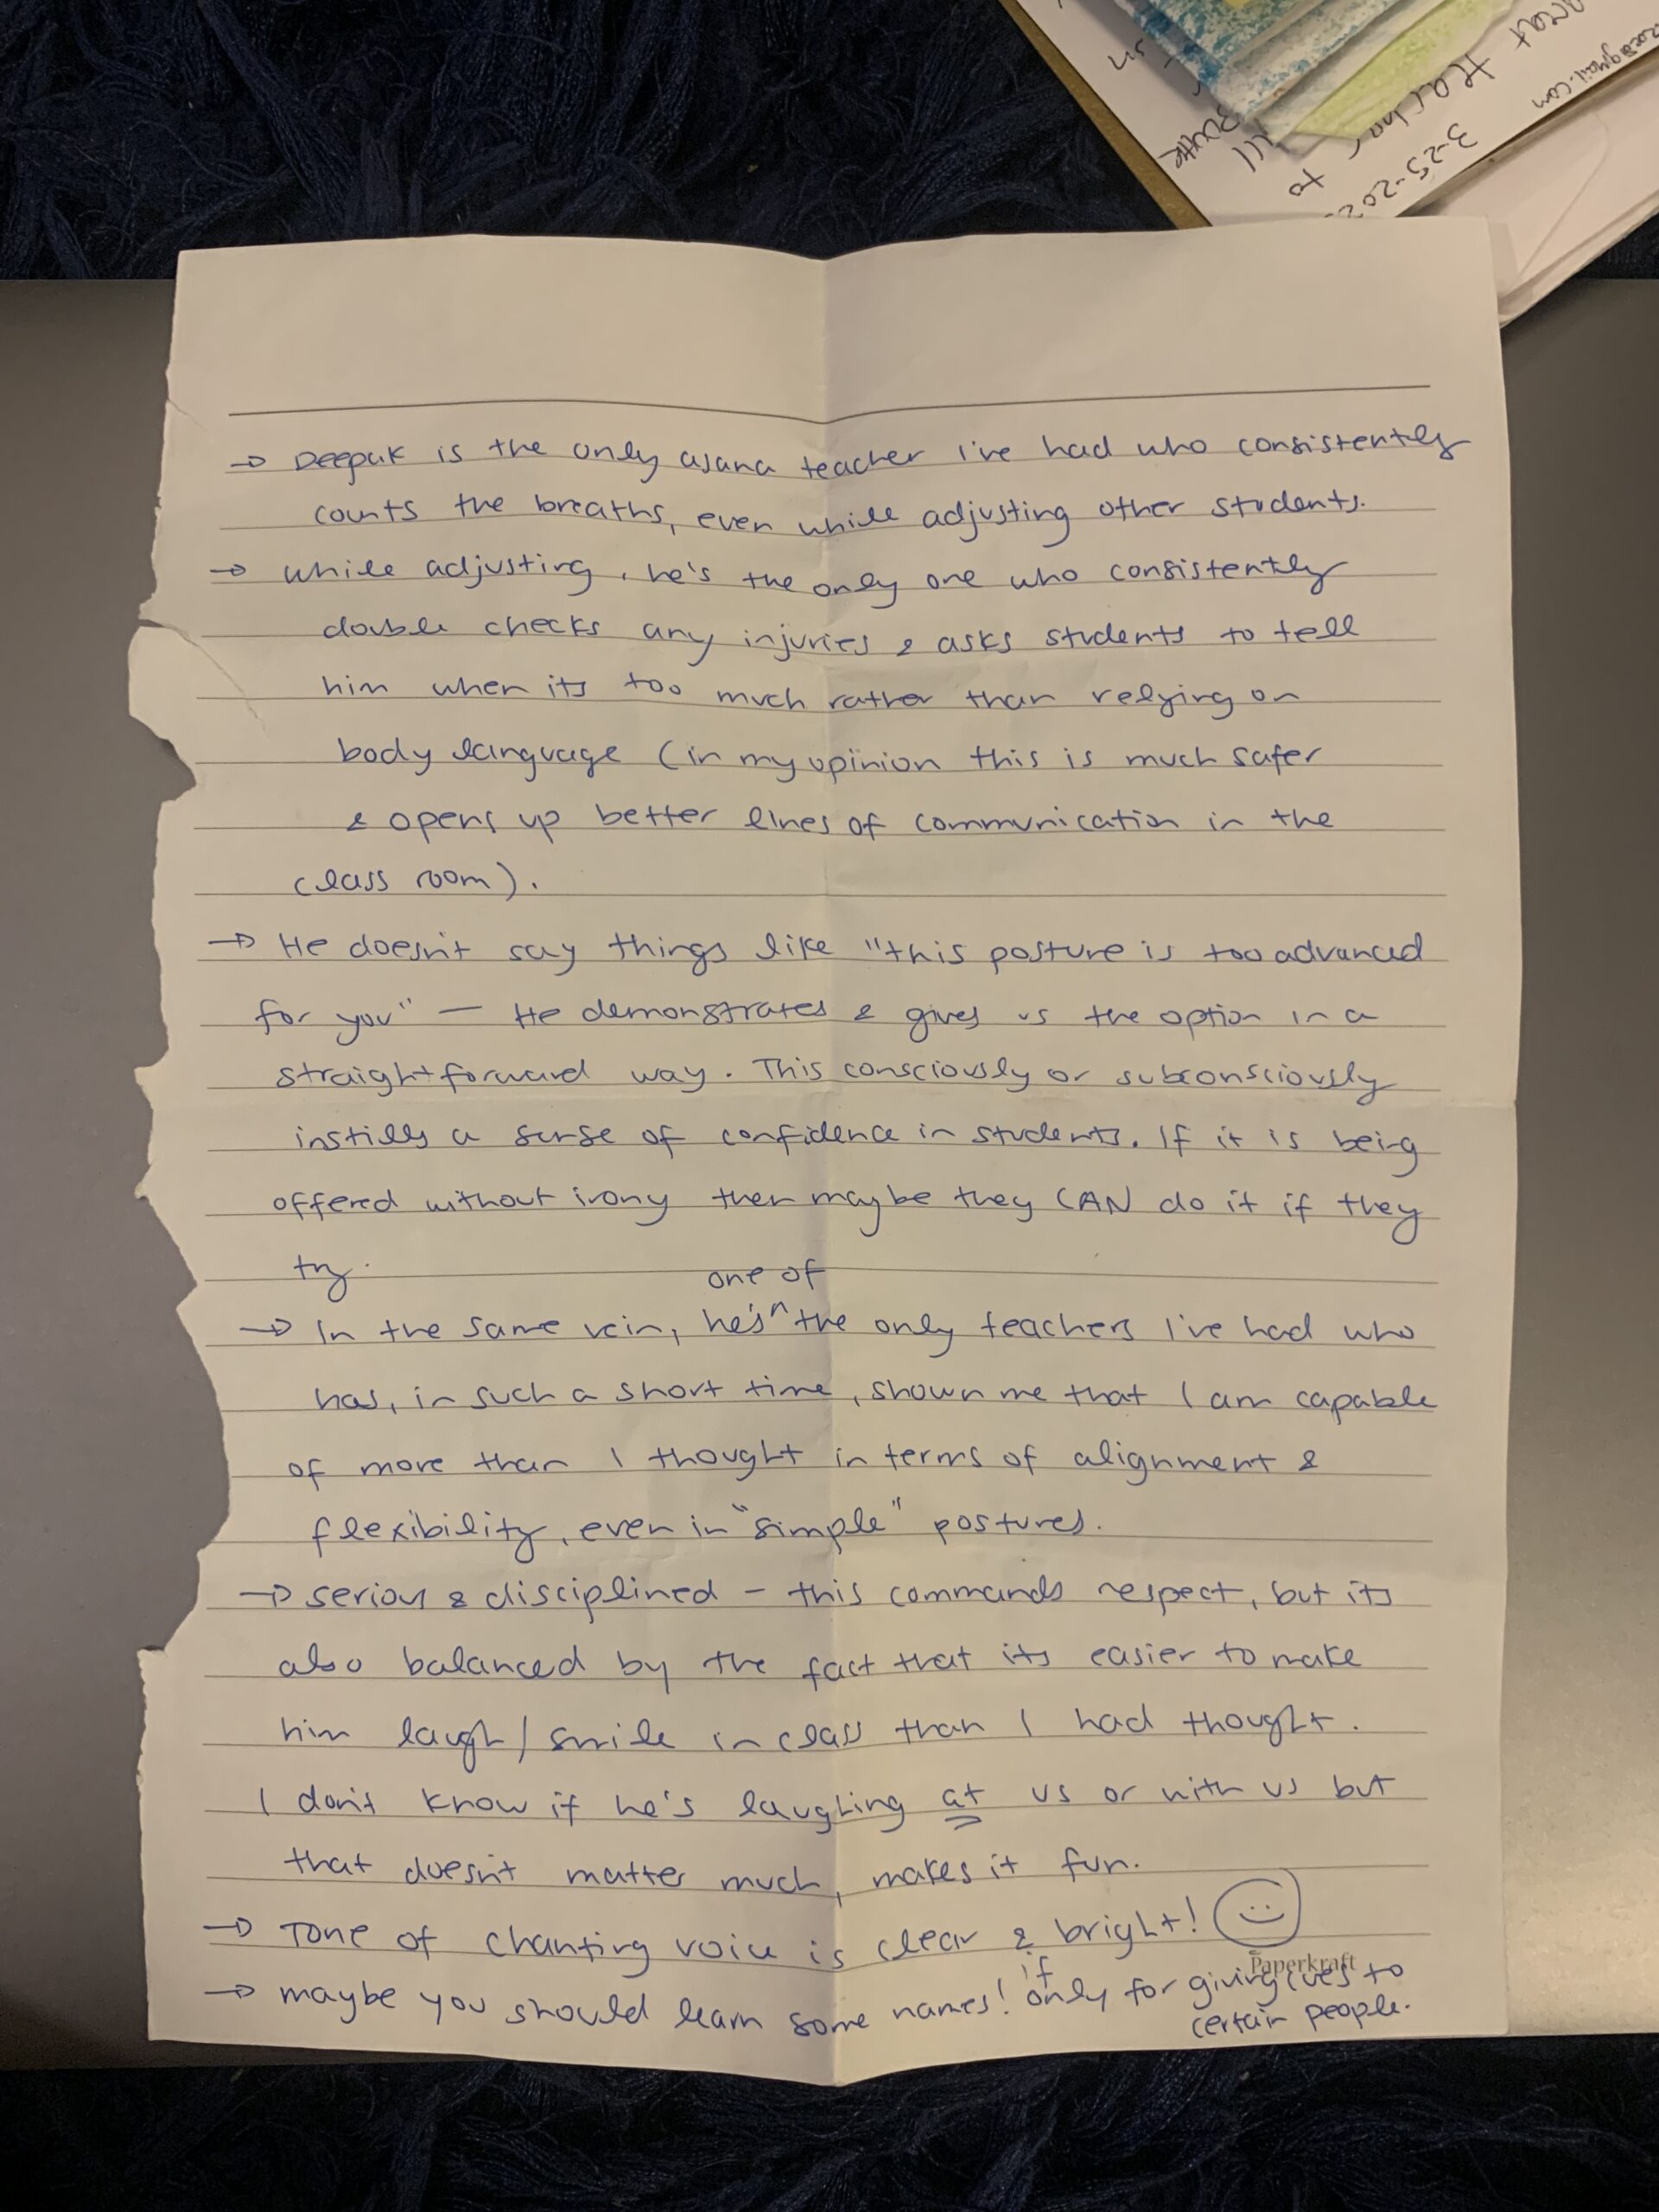 in
will
to
great teacher
3-25-202
@gmail.com
→ Deepak is the only asana teacher I've had who consistently
counts the breaths, even while adjusting other students.
→ while adjusting, he's the only one who consistently
double checks any injuries & asks students to tell
him when its too much rather than relying on
body language (in my opinion this is much safer
& opens up better lines of communication in the
class room).
→ He doesn't say things like "this posture is too advanced
for you" — He demonstrates & gives us the option in a
straightforward way. This consciously or subconsciously
instills a sense of confidence in students. If it is being
offered without irony then maybe they CAN do it if they
try.
→ In the same vein, he's ^one of the only teachers I've had who
has, in such a short time, shown me that I am capable
of more than I thought in terms of alignment &
flexibility, even in "simple" postures.
→ serious & disciplined – this commands respect, but its
also balanced by the fact that its easier to make
him laugh / smile in class than I had thought.
I don't know if he's laughing at us or with us but
that doesn't matter much, makes it fun.
→ Tone of chanting voice is clear & bright!
Paperkraft
→ maybe you should learn some names! if only for giving cues to
certain people.